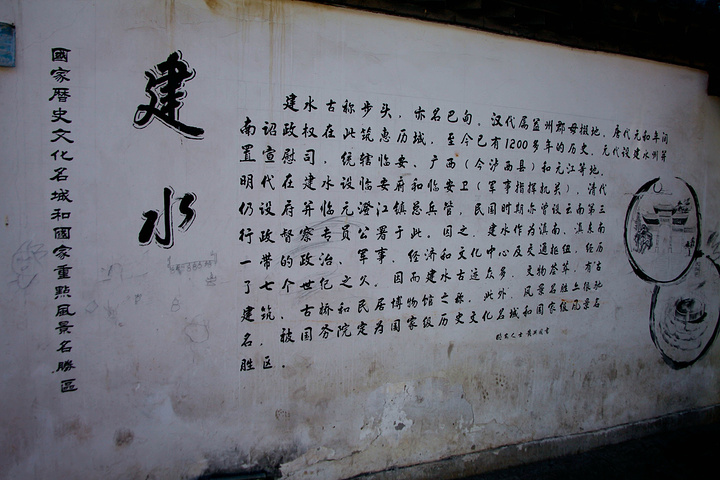 國家歷史文化名城和國家重點風景名勝區
建水
建水古称步头，亦名巴甸。汉代属益州郡毋掇地，唐代元和年间
南诏政权在此筑惠历城，至今已有1200多年的历史。元代设建水州等
置宣慰司，统辖临安、广西（今泸西县）和元江等地。
明代在建水设临安府和临安卫（军事指挥机关），清代
仍设府并临元澄江镇总兵管，民国时期亦曾设云南第三
行政督察专员公署于此。因之，建水作为滇南、滇东南
一带的政治、军事、经济和文化中心及交通枢纽，经历
了七个世纪之久，因而建水古迹众多，文物荟萃，有古
建筑、古桥和民居博物馆之称。此外，风景名胜上很驰
名，被国务院定为国家级历史文化名城和国家级风景名
胜区。